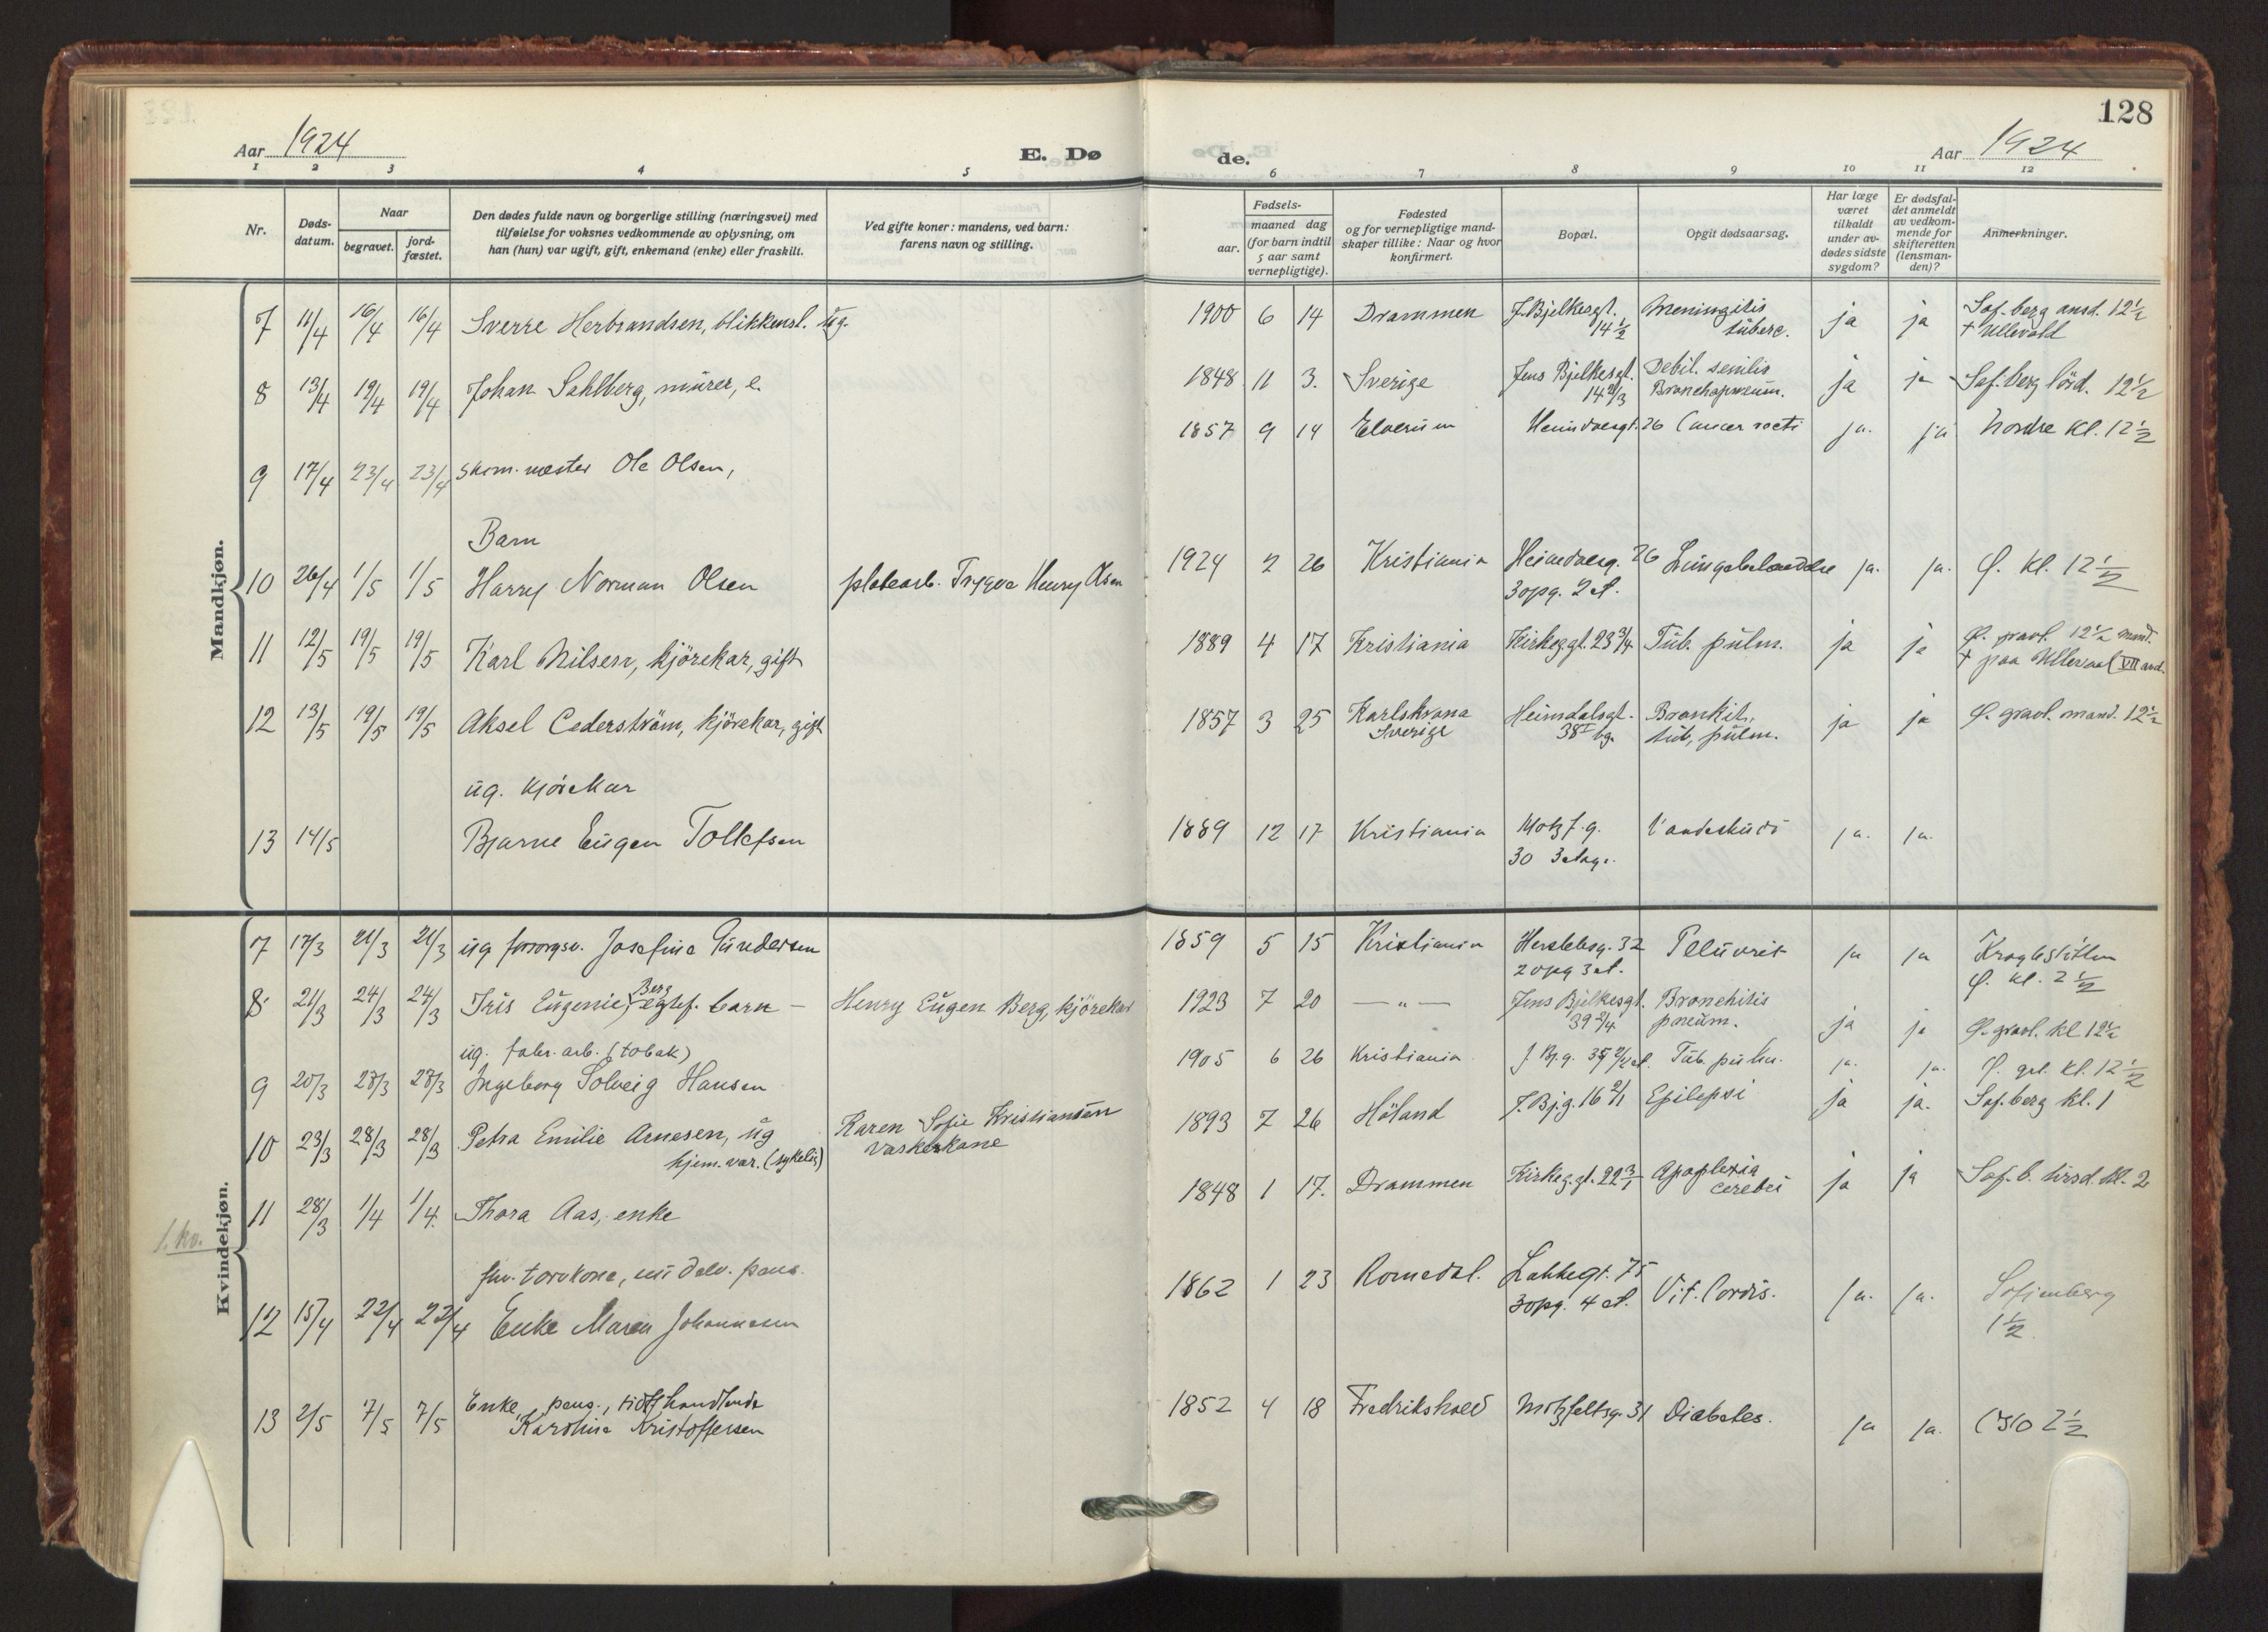 128
Aar 1924
E. Dø
de.
Aar 1924
1 2 3 4 5 6 7 8 9 10 11 12
Nr.
Døds-
datum.
Naar
begravet.
jord-
fæstet.
Den dødes fulde navn og borgerlige stilling (næringsvei) med
tilføielse for voksnes vedkommende av oplysning, om
han (hun) var ugift, gift, enkemand (enke) eller fraskilt.
Ved gifte koner: mandens, ved barn:
farens navn og stilling.
Fødsels-
aar.
maaned dag
(for barn indtil
5 aar samt
vernepligtige).
Fødested
og for vernepligtige mand-
skaper tillike: Naar og hvor
konfirmert.
Bopæl.
Opgit dødsaarsag.
Har læge
været
tilkaldt
under av-
dødes sidste
sygdom?
Er dødsfal-
det anmeldt
av vedkom-
mende for
skifteretten
(lensman-
den)?
Anmerkninger.
Mandkjøn.
7 11/4 16/4 16/4 Sverre Herbrandsen, blikkensl. ug. 1900 6 14 Drammen J. Bjelkesgt. Meningitis ja ja Sof.berg onsd. 12½
14½ tuberc. + Ullevold
8 13/4 19/4 19/4 Johan Sahlberg, murer, e. 1848 11 3. Sverige Jens Bjelkesgt. Debil. senilis ja ja Sof.berg lörd. 12½
14 2/3
9 17/4 23/4 23/4 skom.mester Ole Olsen, 1857 9 14 Elverum 26 Cancer recti ja. ja Nordre kl. 12½
Barn
10 26/4 1/5 1/5 Harry Norman Olsen platearb. Trygve Henry Olsen 1924 2 26 Kristiania 26 Lungebetændelse ja. ja. Ø. kl. 12½
3 opg. 2 et.
11 12/5 19/5 19/5 Karl Nilsen, kjörekar, gift 1889 4 17 Kristiania Kirkeg.gt. 23 3/4 Tub. pulm. ja ja Ø. gravl. 12½ mand.
+ paa Ullevaal VII avd.
12 13/5 19/5 19/5 Aksel Cederström, kjörekar, gift 1857 3 25 Karlskrona Heimdalsgt. Bronkit., ja ja Ø. gravl. mand. 12½
Sverige 38 I bg. tub. pulm.
ug. kjörekar
13 14/5 Bjarne Eugen Tollefsen 1889 12 17 Kristiania Motzf.g. ja. ja.
30 3 etag.
Kvindekjøn.
7 17/3 21/3 21/3 ug forsorgsu. Josefine Gundersen 1859 5 15 Kristiania Herslebsg. 32 Pleurit ja ja
2 opg 3 et. Ø. kl. 2½
Berg
8 21/3 24/3 24/3 Iris Eugenie, egtef. barn — Henry Eugen Berg, kjörekar 1923 7 20 — „ — Jens Bjelkesgt. Bronchitis ja ja Ø. gravl. kl 12½
39 2/4 pneum.
ug. fabr. arb. (tobak)
9 20/3 27/3 27/3 Ingeborg Solveig Hansen 1905 6 26 Kristiania J. Bj.g. Tub. pulm. ja. ja. Ø. grl. kl. 12½
10 23/3 28/3 28/3 Petra Emilie Arnesen, ug Karen Sofie Kristiansen 1893 7 26 Höland J. Bj.g. 16 2/1 Epilepsi ja ja. Sof.berg kl. 1
hjem.var. (sykelig) vaskekone
11 28/3 1/4 1/4. Thora Aas, enke 1848 1 17. Drammen Kirkeg.gt. 22 3/1 Apoplexia ja ja Sof.b. tirsd. kl. 2
cerebri
1. kv.
fhv. torvkone, pens.
12 15/4 22/4 22/4 Enke Maren Johannesen 1862 1 23 Romedal. Lakkegt. 75 Vit. Cordis. ja. ja. Sofienberg
3 opg. 4 et. 1½
Enke, pens., handlende
13 2/5 7/5 7/5 Karoline Kristoffersen 1852 4 18 Fredrikshald Motzfeltsg. 31 Diabetes. ja ja. 2½